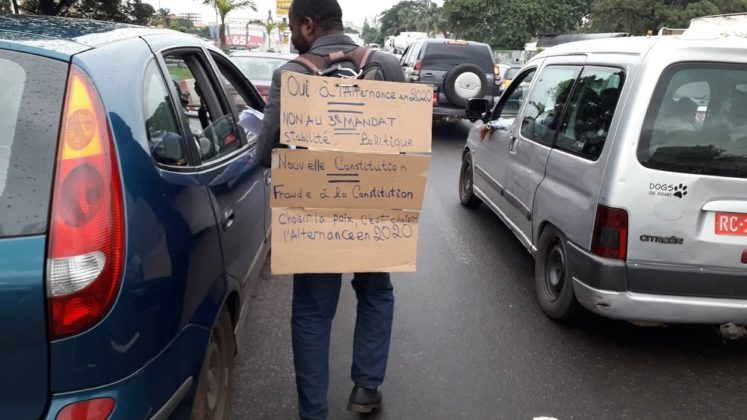 Oui à l'Alternance en 2020
NON AU 3e MANDAT
stabilité Politique
Nouvelle Constitution
Fraude à la Constitution
Choisir la paix, c'est choisir
l'Alternance en 2020
DOGS
ON BOARD
CITROËN
RC